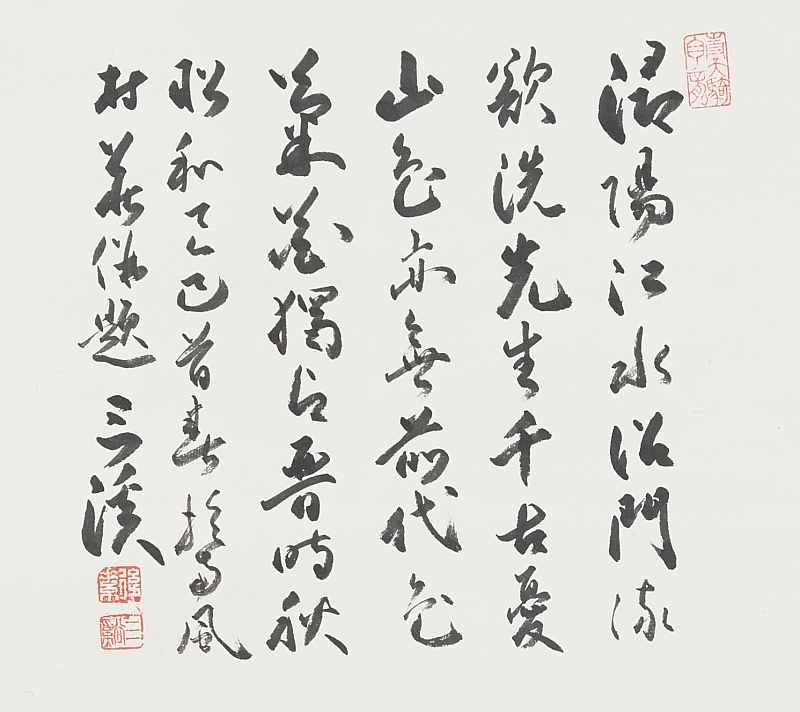 潯陽江水沿門流
欲洗先生千古憂
山色亦無前代色
菊花獨占晋時秋
昭和乙巳首春於風
村荘題 三溪